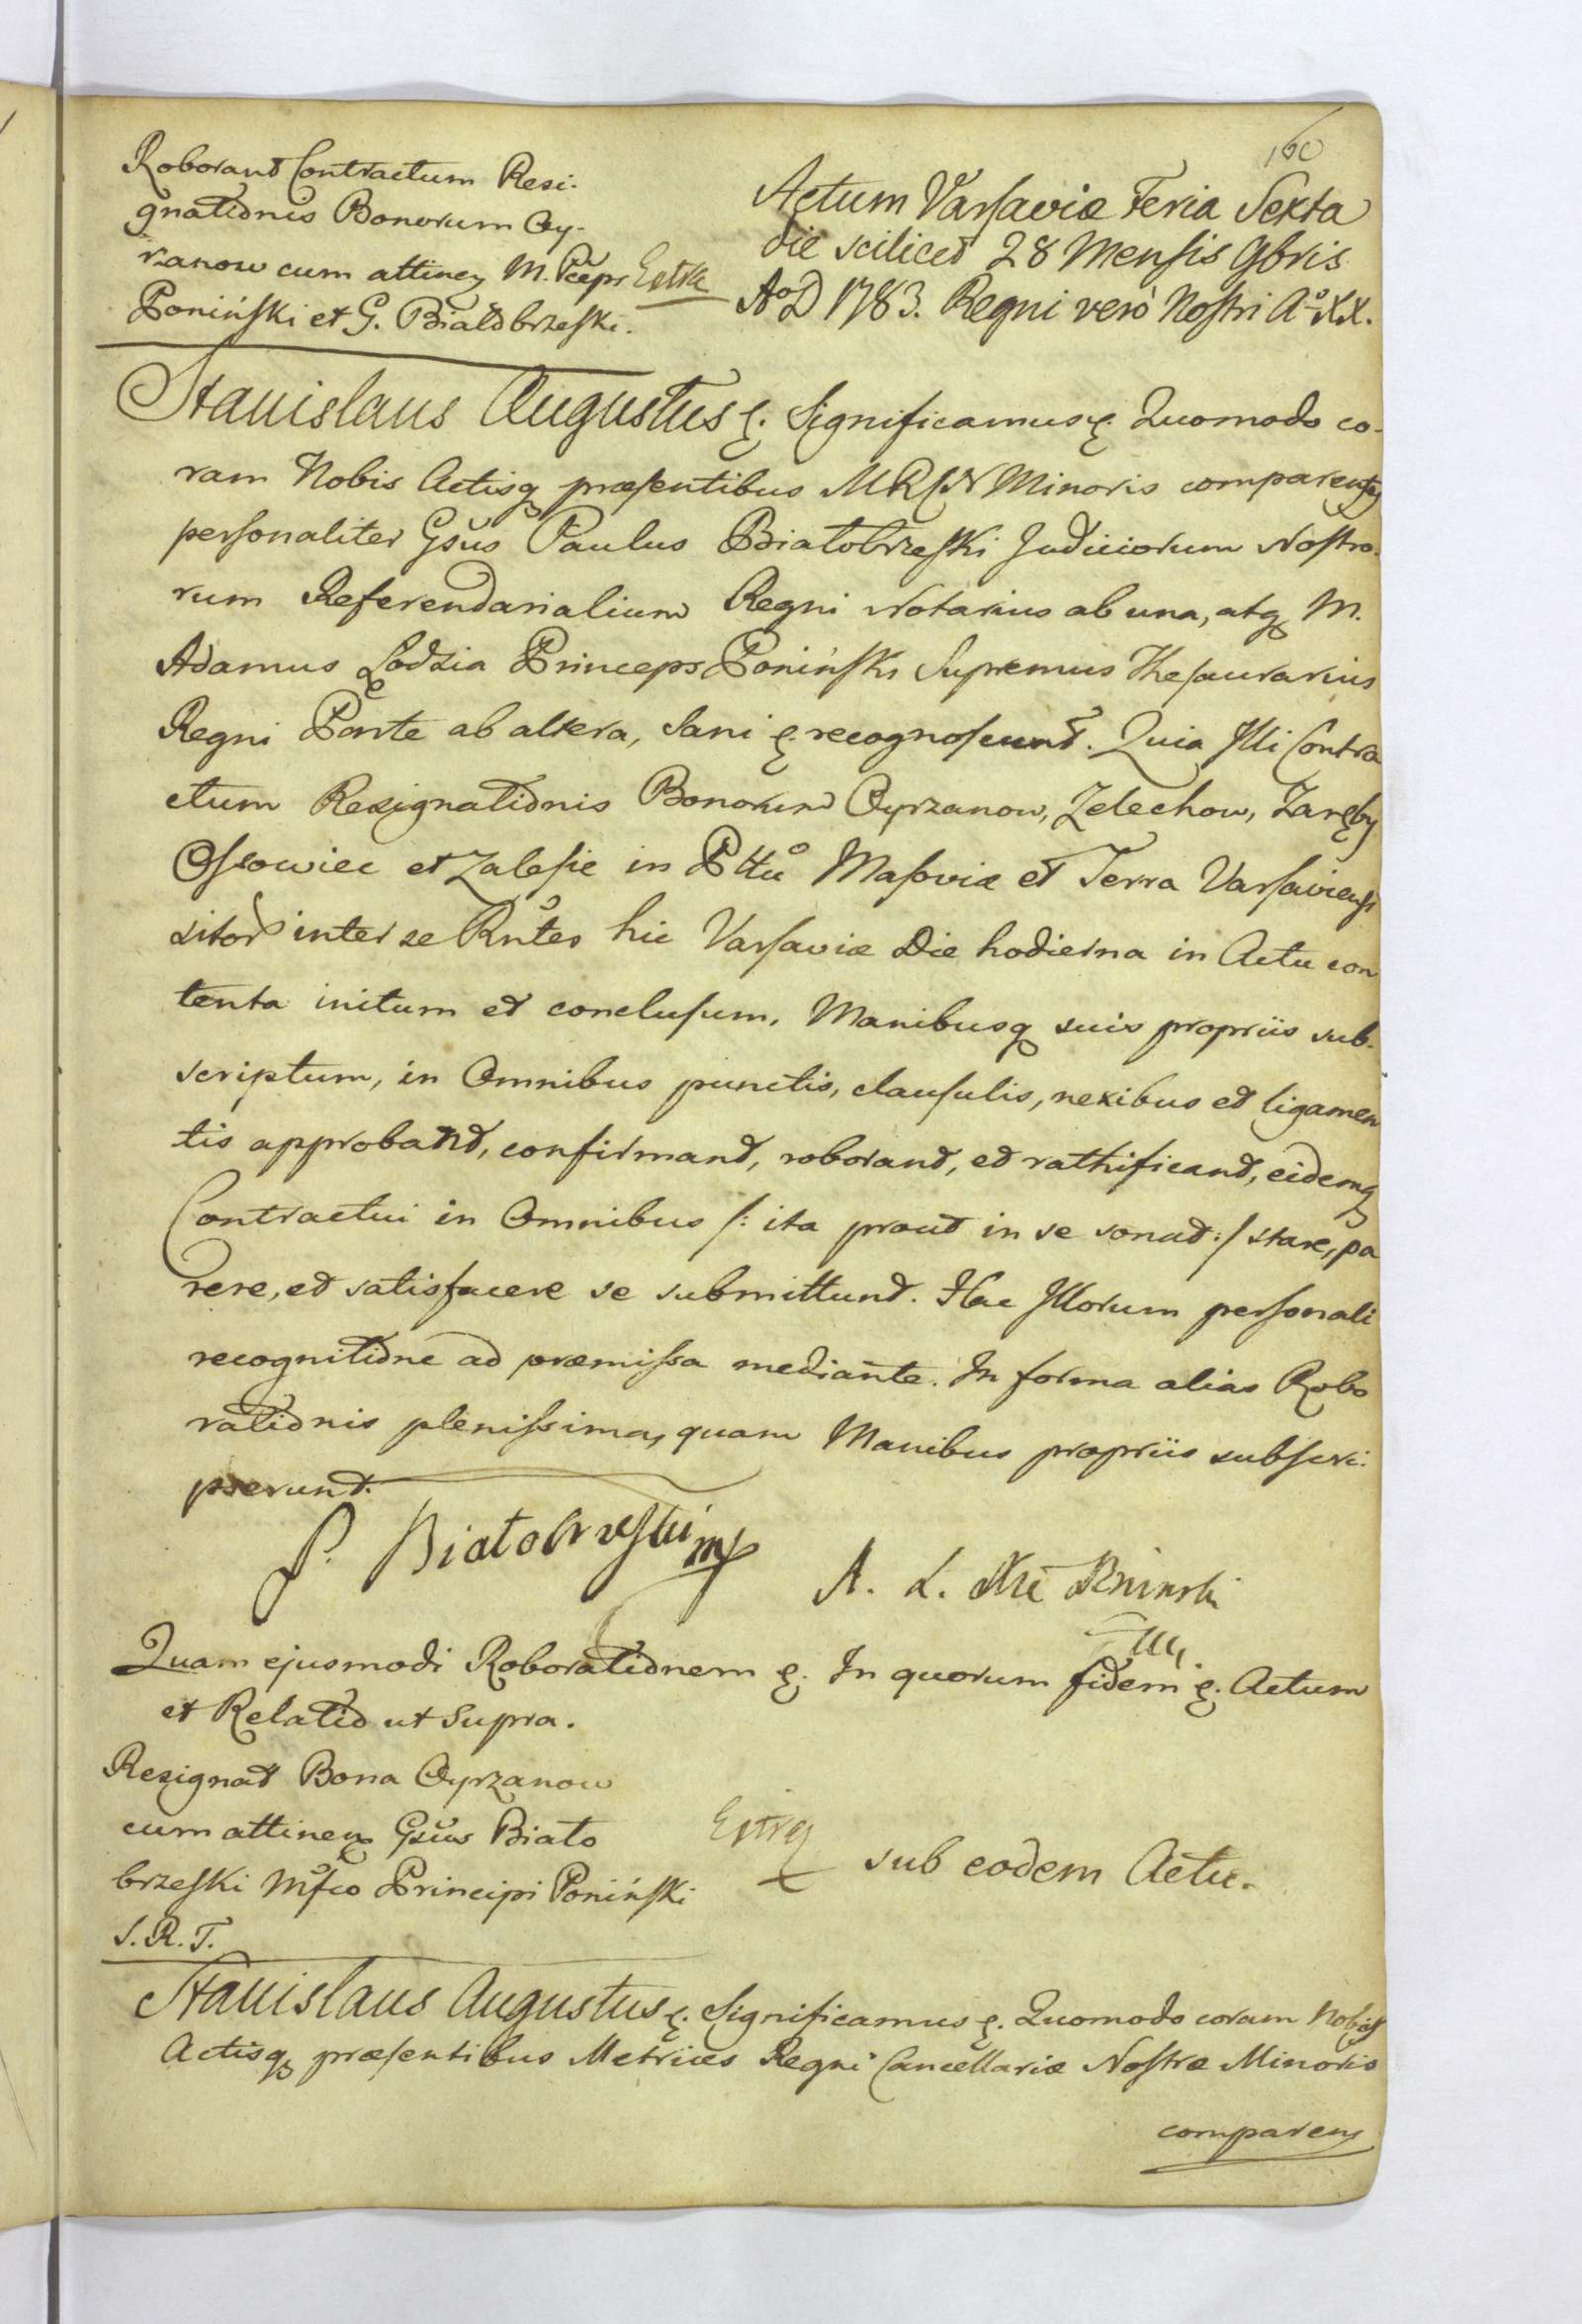 160
Roborant Contractum Resi-
gnationis Bonorum Oy-
rzanow cum attinen M. Pceps Extra
Poniński et G. Białobrzeski.
Actum Varsaviæ Feria Sexta
die scilicet 28 Mensis 9bris
AoD 1783. Regni vero Nostri Ao XX.
Stanislaus Augustus &. Significamus &. Quomodo co-
ram Nobis Actisq præsentibus MRCN Minoris comparentes
personaliter Gsus Paulus Białobrzeski Judiciorum Nostro-
rum Referendarialium Regni Notarius ab una, atq M.
Adamus Lodzia Princeps Poniński Supremus Thesaurarius
Regni Parte ab altera, Sani &. recognoscunt. Quia Illi Contra
ctum Resignationis Bonorum Oyrzanow, Zelechow, Zaręby
Ossowiec et Zalesie in Pttu Masoviæ et Terra Varsaviensi
sitor inter se Rntes hic Varsaviæ Die hodierna in Actu con
tenta initum et conclusum, Manibusq suis propriis sub-
scriptum, in Omnibus punctis, clausulis, nexibus et ligamen
tis approbant, confirmant, roborant, et rathificant, eidemq
Contractui in Omnibus /: ita prout in se sonat :/ stare, pa
rere, et satisfacere se submittunt. Hac Illorum personali
recognitione ad præmissa mediante. In forma alias Robo
rationis plenissima, quam Manibus propriis subscri-
pserunt.
P. Białobrzeski mp
A. L. Xże Poninski
Quam ejusmodi Roborationem &. In quorum fidem &. Actum
et Relatio ut Supra.
Resignat Bona Oyrzanow
cum attinen Gsus Biało
brzeski Mfco Principi Poniński
S. R. T.
Extra
sub eodem Actu.
Stanislaus Augustus &. Significamus &. Quomodo coram Nobis
Actisq præsentibus Metrices Regni Cancellariæ Nostræ Minoris
comparens